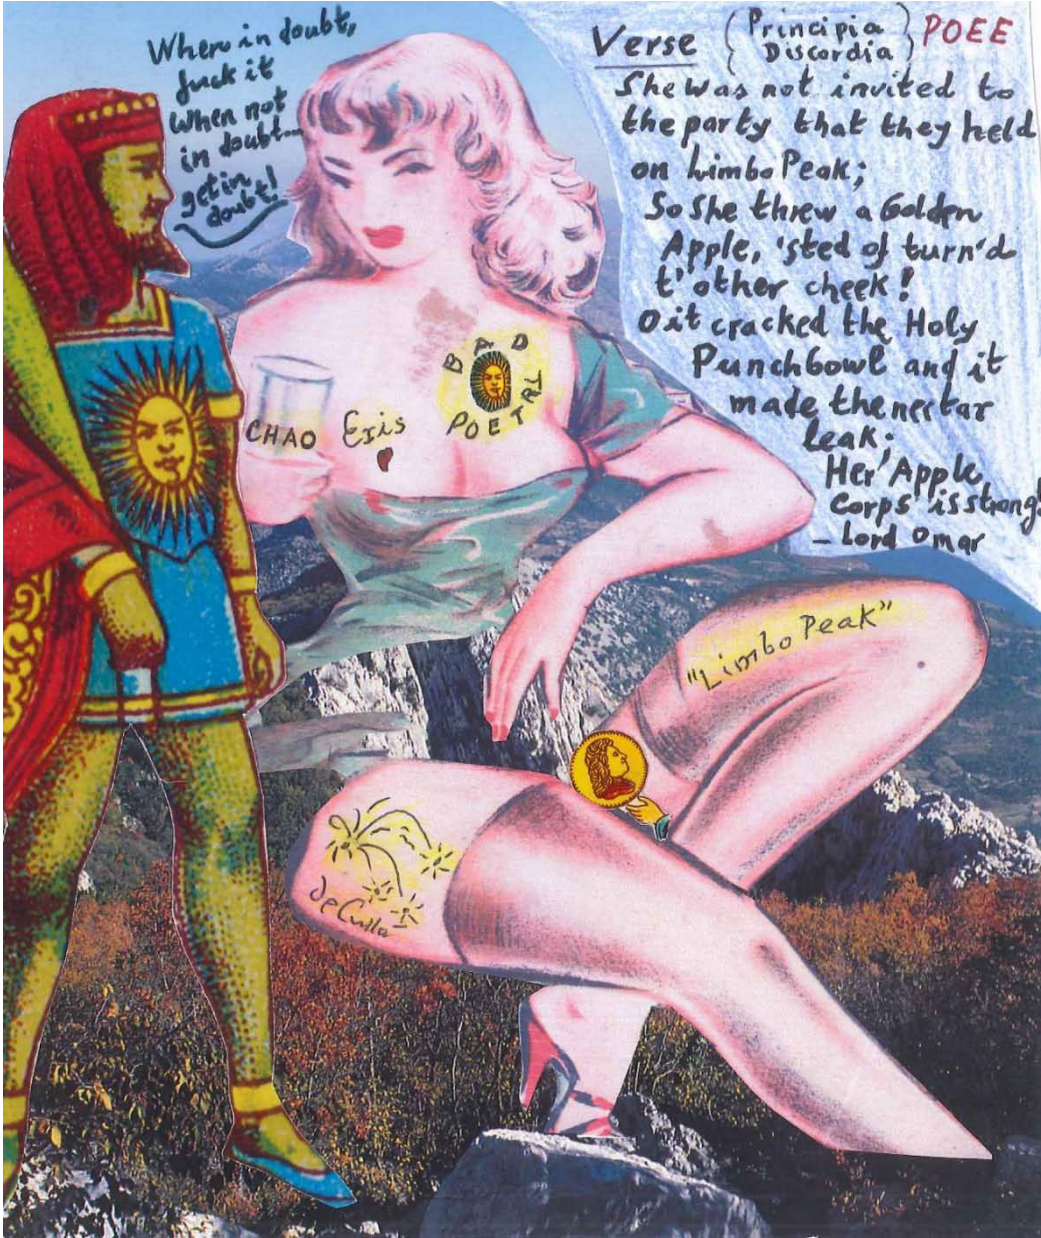 When in doubt,
fuck it
When not
in doubt...
get in
doubt!
Verse (Principia Discordia) POEE
She was not invited to
the party that they held
on Limbo Peak;
So she threw a Golden
Apple, 'sted of turn'd
t'other cheek!
O it cracked the Holy
Punchbowl and it
made the nectar
leak;
Her 'Apple
Corps' is strong!
– Lord Omar
BAD
POETRY
CHAO Eris
"Limbo Peak"
de Culla